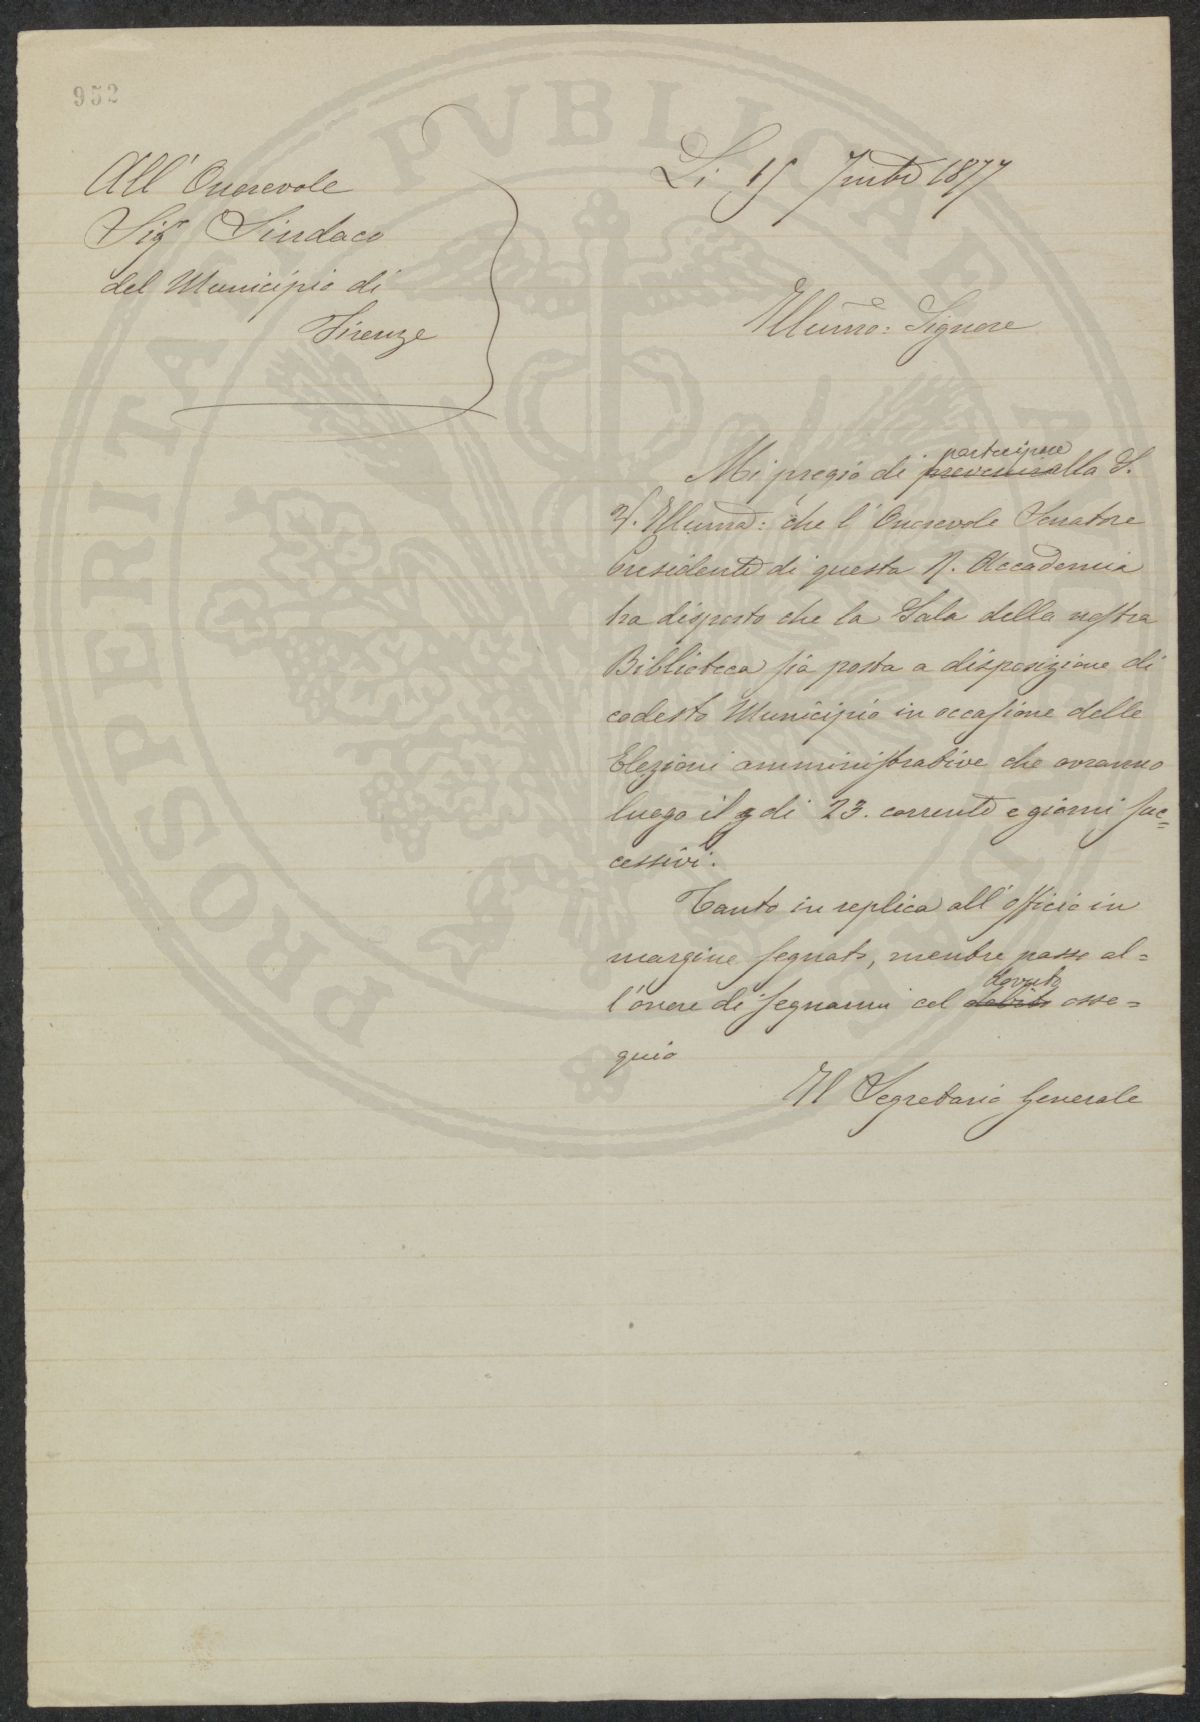 952
All' Onorevole
Sig Sindaco
del Municipio di
Firenze
Li 15 7mbre 1877
Illumo: Signore
Mi pregio di partecipare
prevenire alla S.
V. Illuma: che l' Onorevole Senatore
Presidente di questa R. Accademia
ha disposto che la Sala della nostra
Biblioteca sia posta a disposizione di
codesto Municipio in occasione delle
Elezioni amministrative che avranno
luogo il g di 23. corrente e giorni suc=
cessivi.
Tanto in replica all' officio in
margine segnato, mentre passo al=
l'onore di segnarmi col dovuto
debito osse=
quio
Il Segretario Generale
PROSPERITATI PVBLICAE AVGENDAE